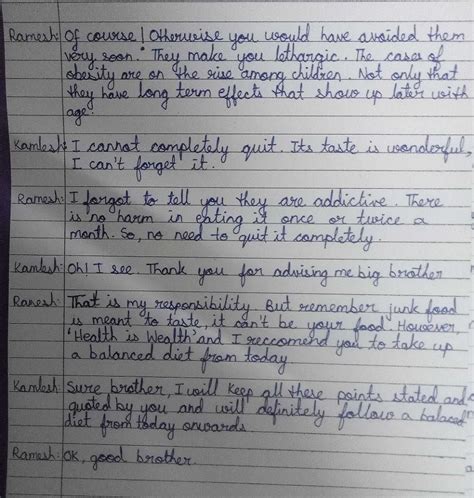 Ramesh: Of course! Otherwise you would have avoided them
very soon. They make you lethargic. The cases of
obesity are on the rise among children. Not only that
they have long term effects that show up later with
age.
Kamlesh: I cannot completely quit. Its taste is wonderful,
I can't forget it.
Ramesh: I forgot to tell you they are addictive. There
is no harm in eating it once or twice a
month. So, no need to quit it completely.
Kamlesh: Oh! I see. Thank you for advising me big brother
Ramesh: That is my responsibility. But remember junk food
is meant to taste, it can't be your food. However,
'Health is Wealth' and I reccomend you to take up
a balanced diet from today
Kamlesh: Sure brother, I will keep all these points stated and
quoted by you and will definitely follow a balaced
diet from today onwards
Ramesh: OK, good brother.